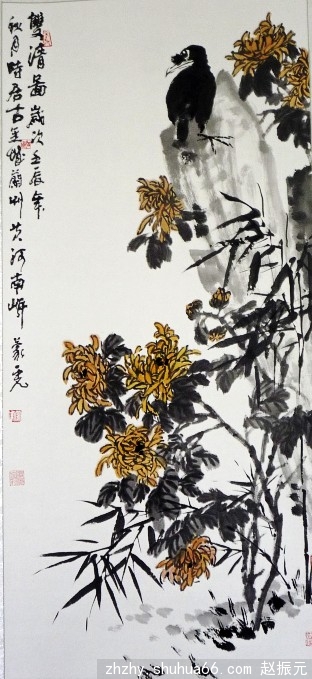 雙清圖歲次壬辰年
秋月時居古金城蘭州黃河南岸
zhzhy.shuhua66.com 赵振元